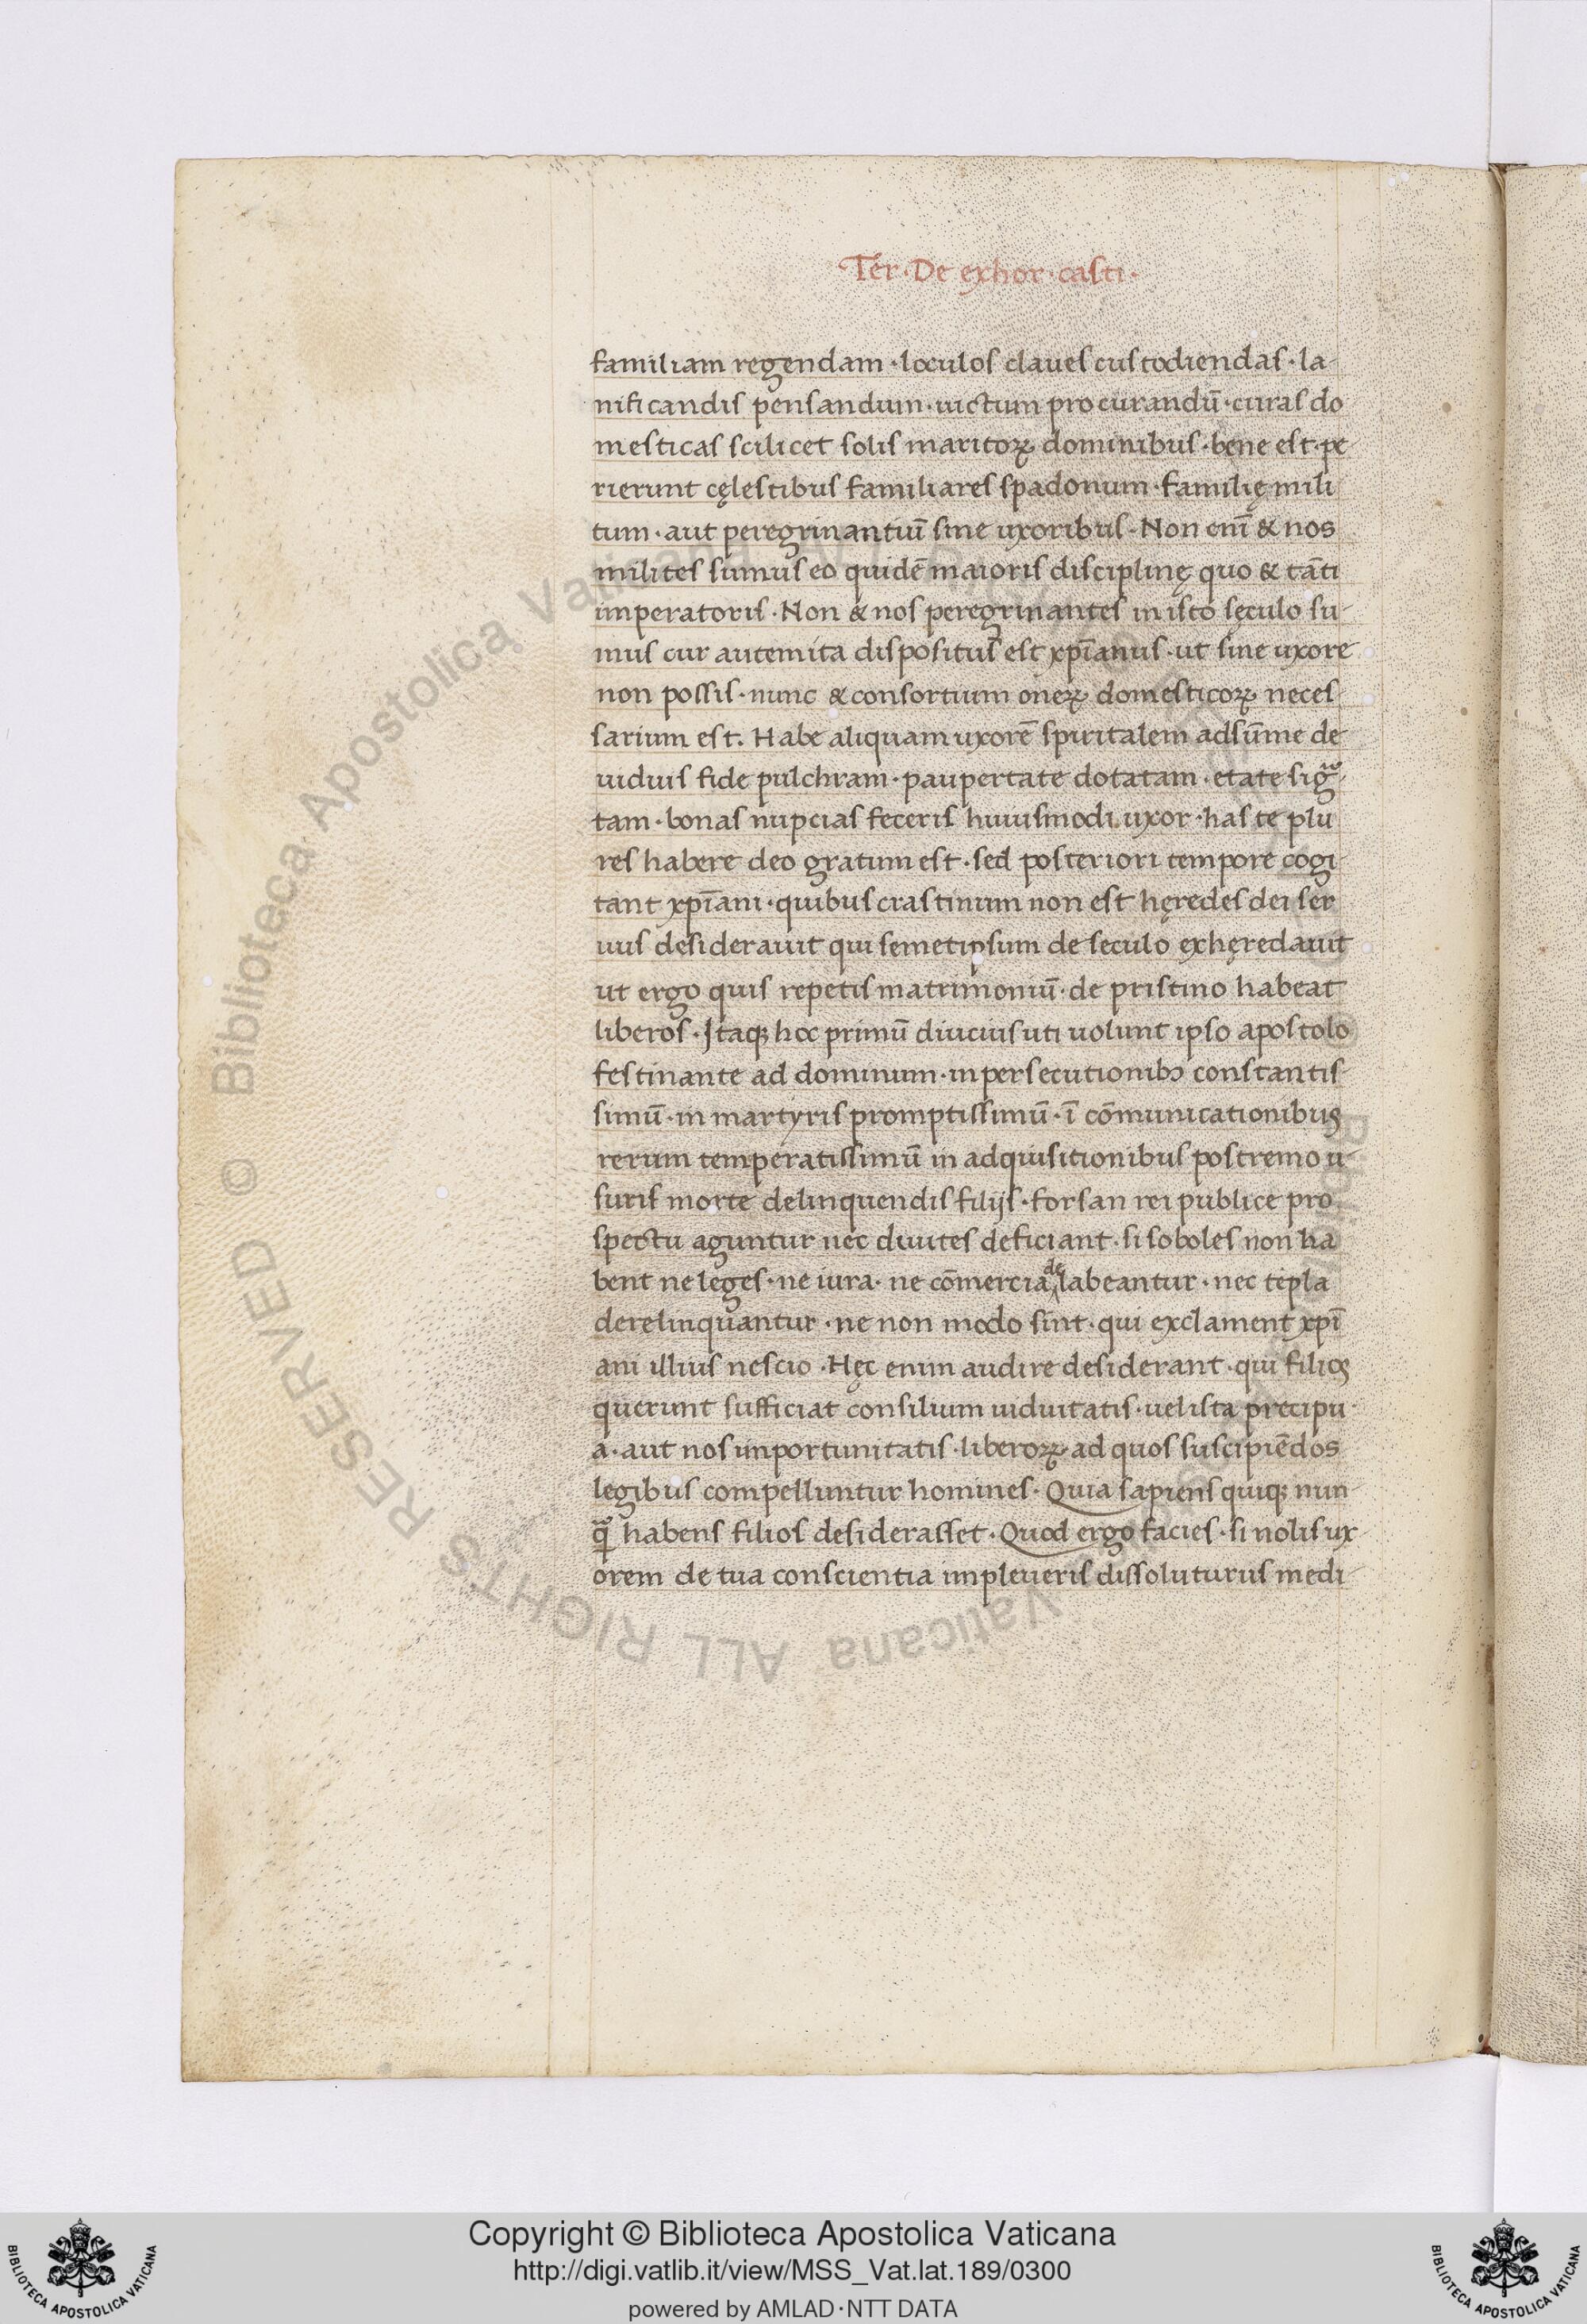 ·Ter·De exhor·casti·
familiam regendam·loculos claues custodiendas·la-
nificandis pensandum·uictum procurandū·curas do
mesticas scilicet solis maritoꝝ dominibus·bene est·pe-
rierunt cęlestibus familiares spadonum·familię mili
tum·aut peregrinantiū sine uxoribus·Non enī & nos
milites sumus eo quidē maioris disciplinę quo & tāti
imperatoris·Non & nos peregrinantes in isto sęculo su-
mus cur autem ita dispositus est xp̄ianus·ut sine uxore
non possis·nunc & consortium oneꝝ domesticoꝝ neces-
sarium est. Habe aliquam uxorē spiritalem adsūme de
uiduis fide pulchram·paupertate dotatam·etate sig-
tam·bonas nupcias feceris huiusmodi uxor·has te plu
res habere deo gratum est·sed posteriori tempore cogi-
tant xp̄iani·quibus crastinum non est hęredes dei ser
uus desiderauit qui semetipsum de seculo exhęredauit
ut ergo quis repetis matrimoniū·de pristino habeat
liberos·Itaqꝫ hoc primū diucius uti uolunt ipso apostolo
festinante ad dominum·in persecutionibꝫ constantis-
simū·in martyris promptissimū·ī cōmunicationibus
rerum temperatissimū in adquisitionibus postremo u-
suris morte delinquendis filijs·forsan rei publice pro
spectu aguntur nec diuites deficiant·si soboles non ha
bent ne leges·ne iura·ne cōmercia delabeantur·nec tēpla
derelinquantur·ne non modo sint·qui exclament xp̄i
ani illius nescio·Hęc enim audire desiderant·qui filios
querunt sufficiat consilium uiduitatis·uel ista precipu
a·aut nos inportunitatis·liberoꝝ ad quos suscipiēdos
legibus compelluntur homines·Quia sapiens quiqꝫ nun-
q̄ habens filios desiderasset·Quod ergo facies·si nolis ux
orem de tua conscientia impleueris dissoluturus medi-
© Biblioteca Apostolica Vaticana ALL RIGHTS RESERVED © Biblioteca Apostolica Vaticana ALL RIGHTS RESERVED
Copyright © Biblioteca Apostolica Vaticana
http://digi.vatlib.it/view/MSS_Vat.lat.189/0300
powered by AMLAD·NTT DATA
BIBLIOTECA APOSTOLICA VATICANA
BIBLIOTECA APOSTOLICA VATICANA